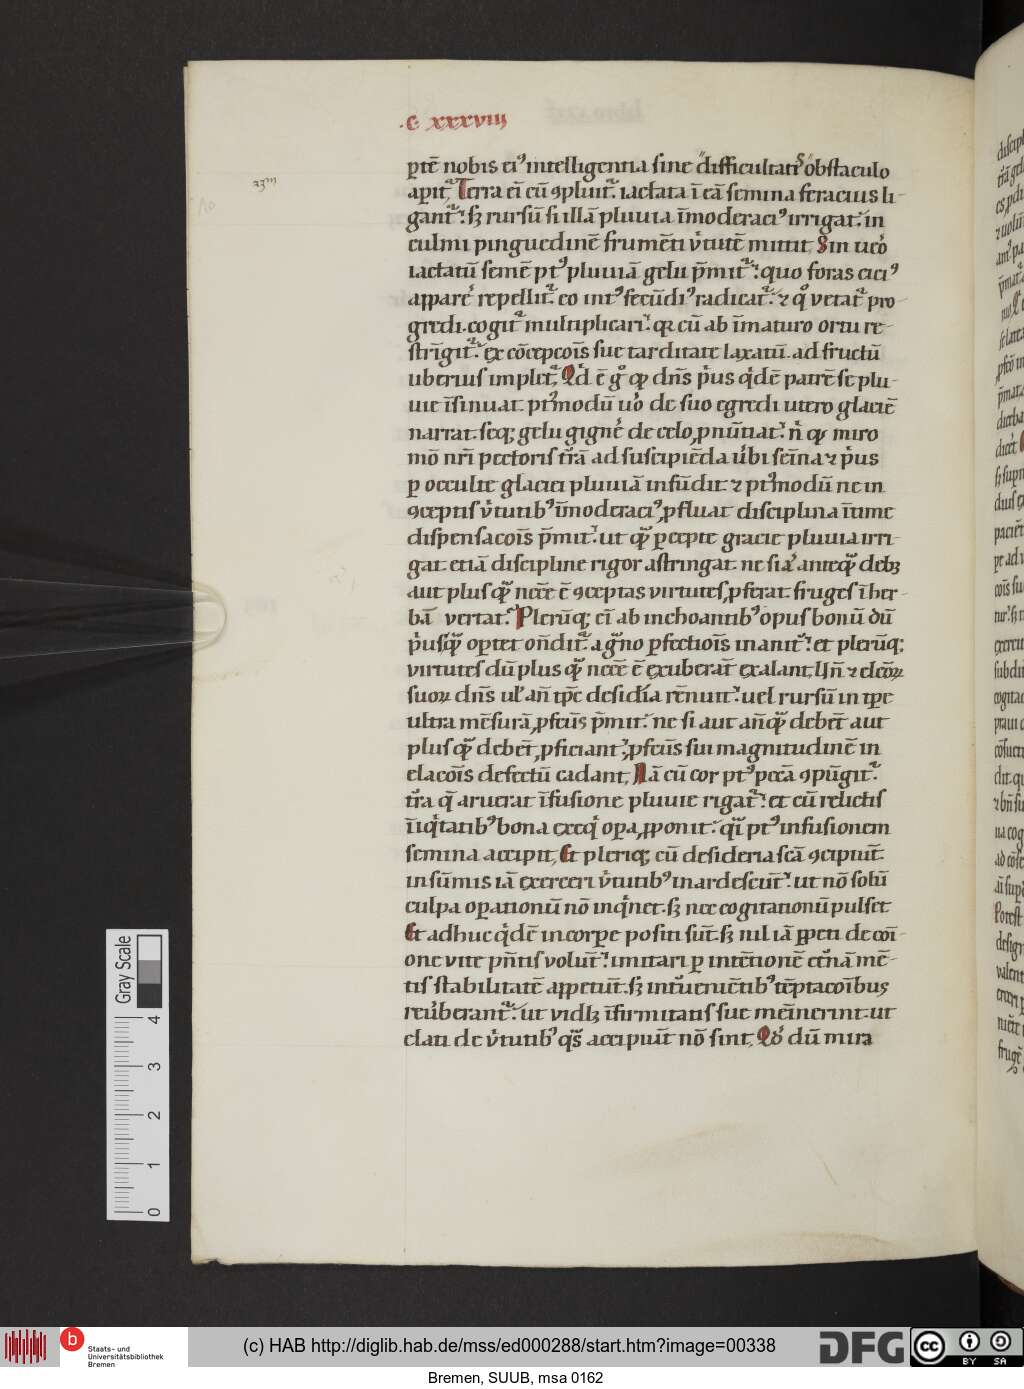 ·C· xxxviii
ꝑtē nobis eiꝰ intelligentia sine difficultatis obstaculo
aꝑit᷑. Terra eī cū ꝯpluit᷑. iactata ī eā semina feracius li-
gant᷑. sꝫ rursū si illā pluuia īmoderaciꝰ irrigat. in
culmi pinguedinē frumēti v̇tutē mittit. Sin uero
iactatū semē ptꝰ pluuiā gelu p̄mit᷑. quo foras cicꝰ
appare᷑ repellit᷑. eo intꝰ fecūdiꝰ radicat᷑. ⁊ qͦ vetat᷑ pro-
gredi. cogit᷑ multiplicari. qꝛ cū ab īmaturo ortu re-
strīgit᷑. ex cōcepcoīs sue tarditate laxatū. ad fructū
uberius implet᷑. Qd̄ ē gͦ qꝙ dn̄s pͥus qͥdē patrē se plu-
uie īsinuat. ptmodū uͦo de suo egredi utero glaciē
narrat. seqꝫ gelu gigne᷑ de celo, ꝓnūtiat. nͥ qꝙ miro
mō nr̄i pectoris tr̄ā ad suscipiēda ubi seīna ⁊ pͥus
ꝑ occulte glaciei pluuiā infūdit ⁊ ptmodū ne in
ꝯceptis v̇tutibꝰ īmoderaciꝰ ꝓfluat disciplina ītime
dispensacoīs p̄mit. ut qꝫ ꝑcepte gracie pluuia irri-
gat. etiā discipline rigor astringat. ne siue anteqꝫ debꝫ
aut plus qꝫ necē ē ꝯceptas virtutes, ꝓferat. fruges ī her-
bā vertat᷑. Plerūqꝫ eī ab inchoantibꝰ opus bonū dū
pͥusqꝫ oꝑtet on̄dit᷑. a gͣno ꝑfectiois inanit᷑. et plerūqꝫ
virtutes dū plus qꝫ necē ē exuberāt exalant. Hīn ⁊ elcōꝝ
suoꝝ dn̄s ul̓ an̄ tꝑe desidia rēnuit. uel rursū in tꝑe
ultra mēsurā, ꝓfcūs p̄mit. ne si aut an̄qꝫ debēt aut
plus qꝫ debēt, ꝓficiant. ꝓfcūs sui magnitudinē in
elacoīs defectū cadant. Nā cū cor ptꝰ pccā ꝯpūgit᷑.
tr̄a q̄ aruerat īfusione pluuie rigat᷑. et cū relictis
īiqͥtatibꝰ bona exeqͥ oꝑa, ꝓponit. qͣi ptꝰ infusionem
semina accipit. Et pleriqꝫ cū desideria scā ꝯcipiūt.
in sūmis iā exerceri v̇tutibꝰ inardescūt. ut nō solū
culpa oꝑationū nō inqͥnet. sꝫ nec cogitationū pulset
Et adhuc qͥdē in corꝑe positi sūt. sꝫ nil iā ꝓpeti de coī-
one vite pn̄tis volūt. imitari ꝑ intētionē et̄nā mē-
tis stabilitatē appetūt. sꝫ int̄ueniētibꝰ tēptacoībus
reūberant᷑. ut vidlꝫ īfirmitatis sue mēinerint. ut
elati de v̇tutibꝰ qͣs accipiūt nō sint. Qͦ dū mira
Gray Scale
0 1 2 3 4
b
Staats- und
Universitätsbibliothek
Bremen
(c) HAB http://diglib.hab.de/mss/ed000288/start.htm?image=00338
DFG
cc BY SA
Bremen, SUUB, msa 0162